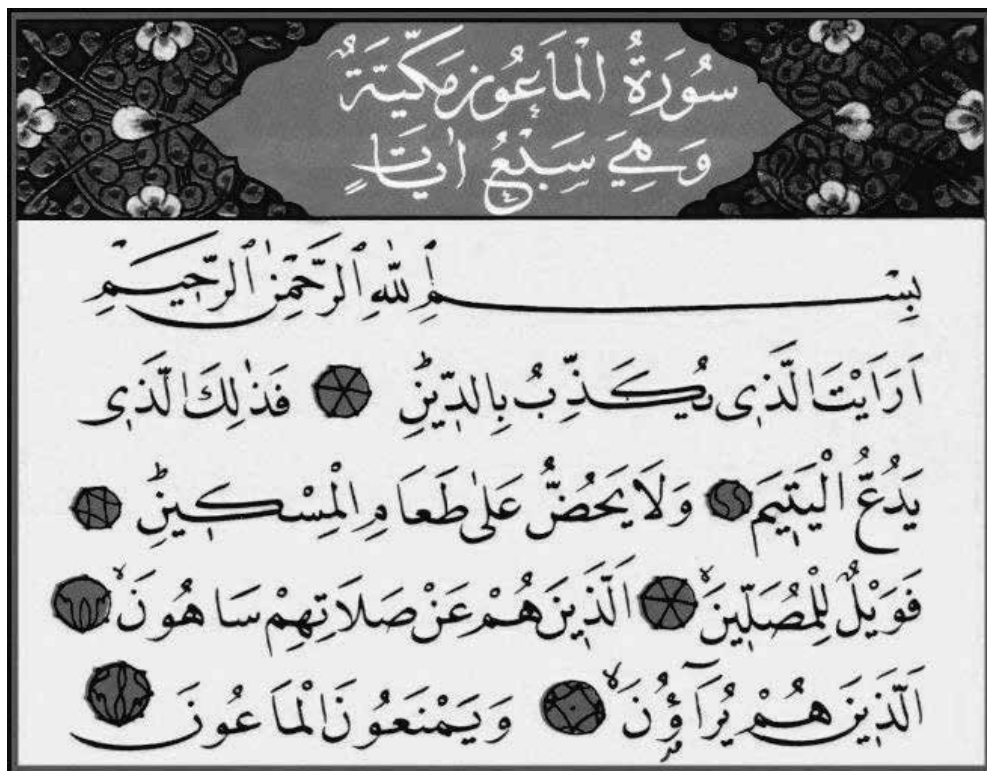 سُورَةُ الْمَاعُونِ مَكِّيَّةٌ
وَهِيَ سَبْعُ اٰيَاتٍ
بِسْمِ اللّٰهِ الرَّحْمٰنِ الرَّحِيمِ
اَرَاَيْتَ الَّذِى يُكَذِّبُ بِالدِّينِ فَذٰلِكَ الَّذِى
يَدُعُّ الْيَتِيمَ وَلَا يَحُضُّ عَلٰى طَعَامِ الْمِسْكِينِ
فَوَيْلٌ لِلْمُصَلِّينَ اَلَّذِينَ هُمْ عَنْ صَلَاتِهِمْ سَاهُونَ
اَلَّذِينَ هُمْ يُرَآؤُنَ وَيَمْنَعُونَ الْمَاعُونَ